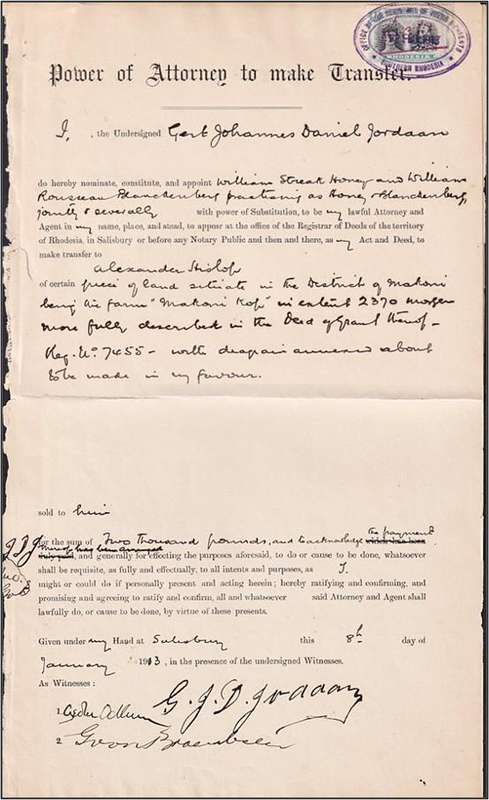 Power of Attorney to make Transfer.
I, , the Undersigned Gert Johannes Daniel Jordaan
do hereby nominate, constitute, and appoint William Streak Honey and William
Rousseau Blanckenberg practising as Honey & Blanckenberg,
jointly & severally with power of Substitution, to be my lawful Attorney and
Agent in my name, place, and stead, to appear at the office of the Registrar of Deeds of the territory
of Rhodesia, in Salisbury or before any Notary Public and then and there, as my Act and Deed, to
make transfer to
Alexander Hislop
of certain piece of land situate in the District of Makoni
being the farm "Makoni Kop" in extent 2370 morgen
more fully described in the Deed of Grant thereof
Reg. No 7455 - with diagram annexed about
to be made in my favour.
sold to him
the payment
For the sum of Two thousand pounds, and I acknowledge
G.J.D.J
, and generally for effecting the purposes aforesaid, to do or cause to be done, whatsoever
shall be requisite, as fully and effectually, to all intents and purposes, as I.
might or could do if personally present and acting herein; hereby ratifying and confirming, and
promising and agreeing to ratify and confirm, all and whatsoever said Attorney and Agent shall
lawfully do, or cause to be done, by virtue of these presents.
Given under my Hand at Salisbury this 8th day of
January 1913, in the presence of the undersigned Witnesses.
As Witnesses:
G. J. D. Jordaan
1.
2